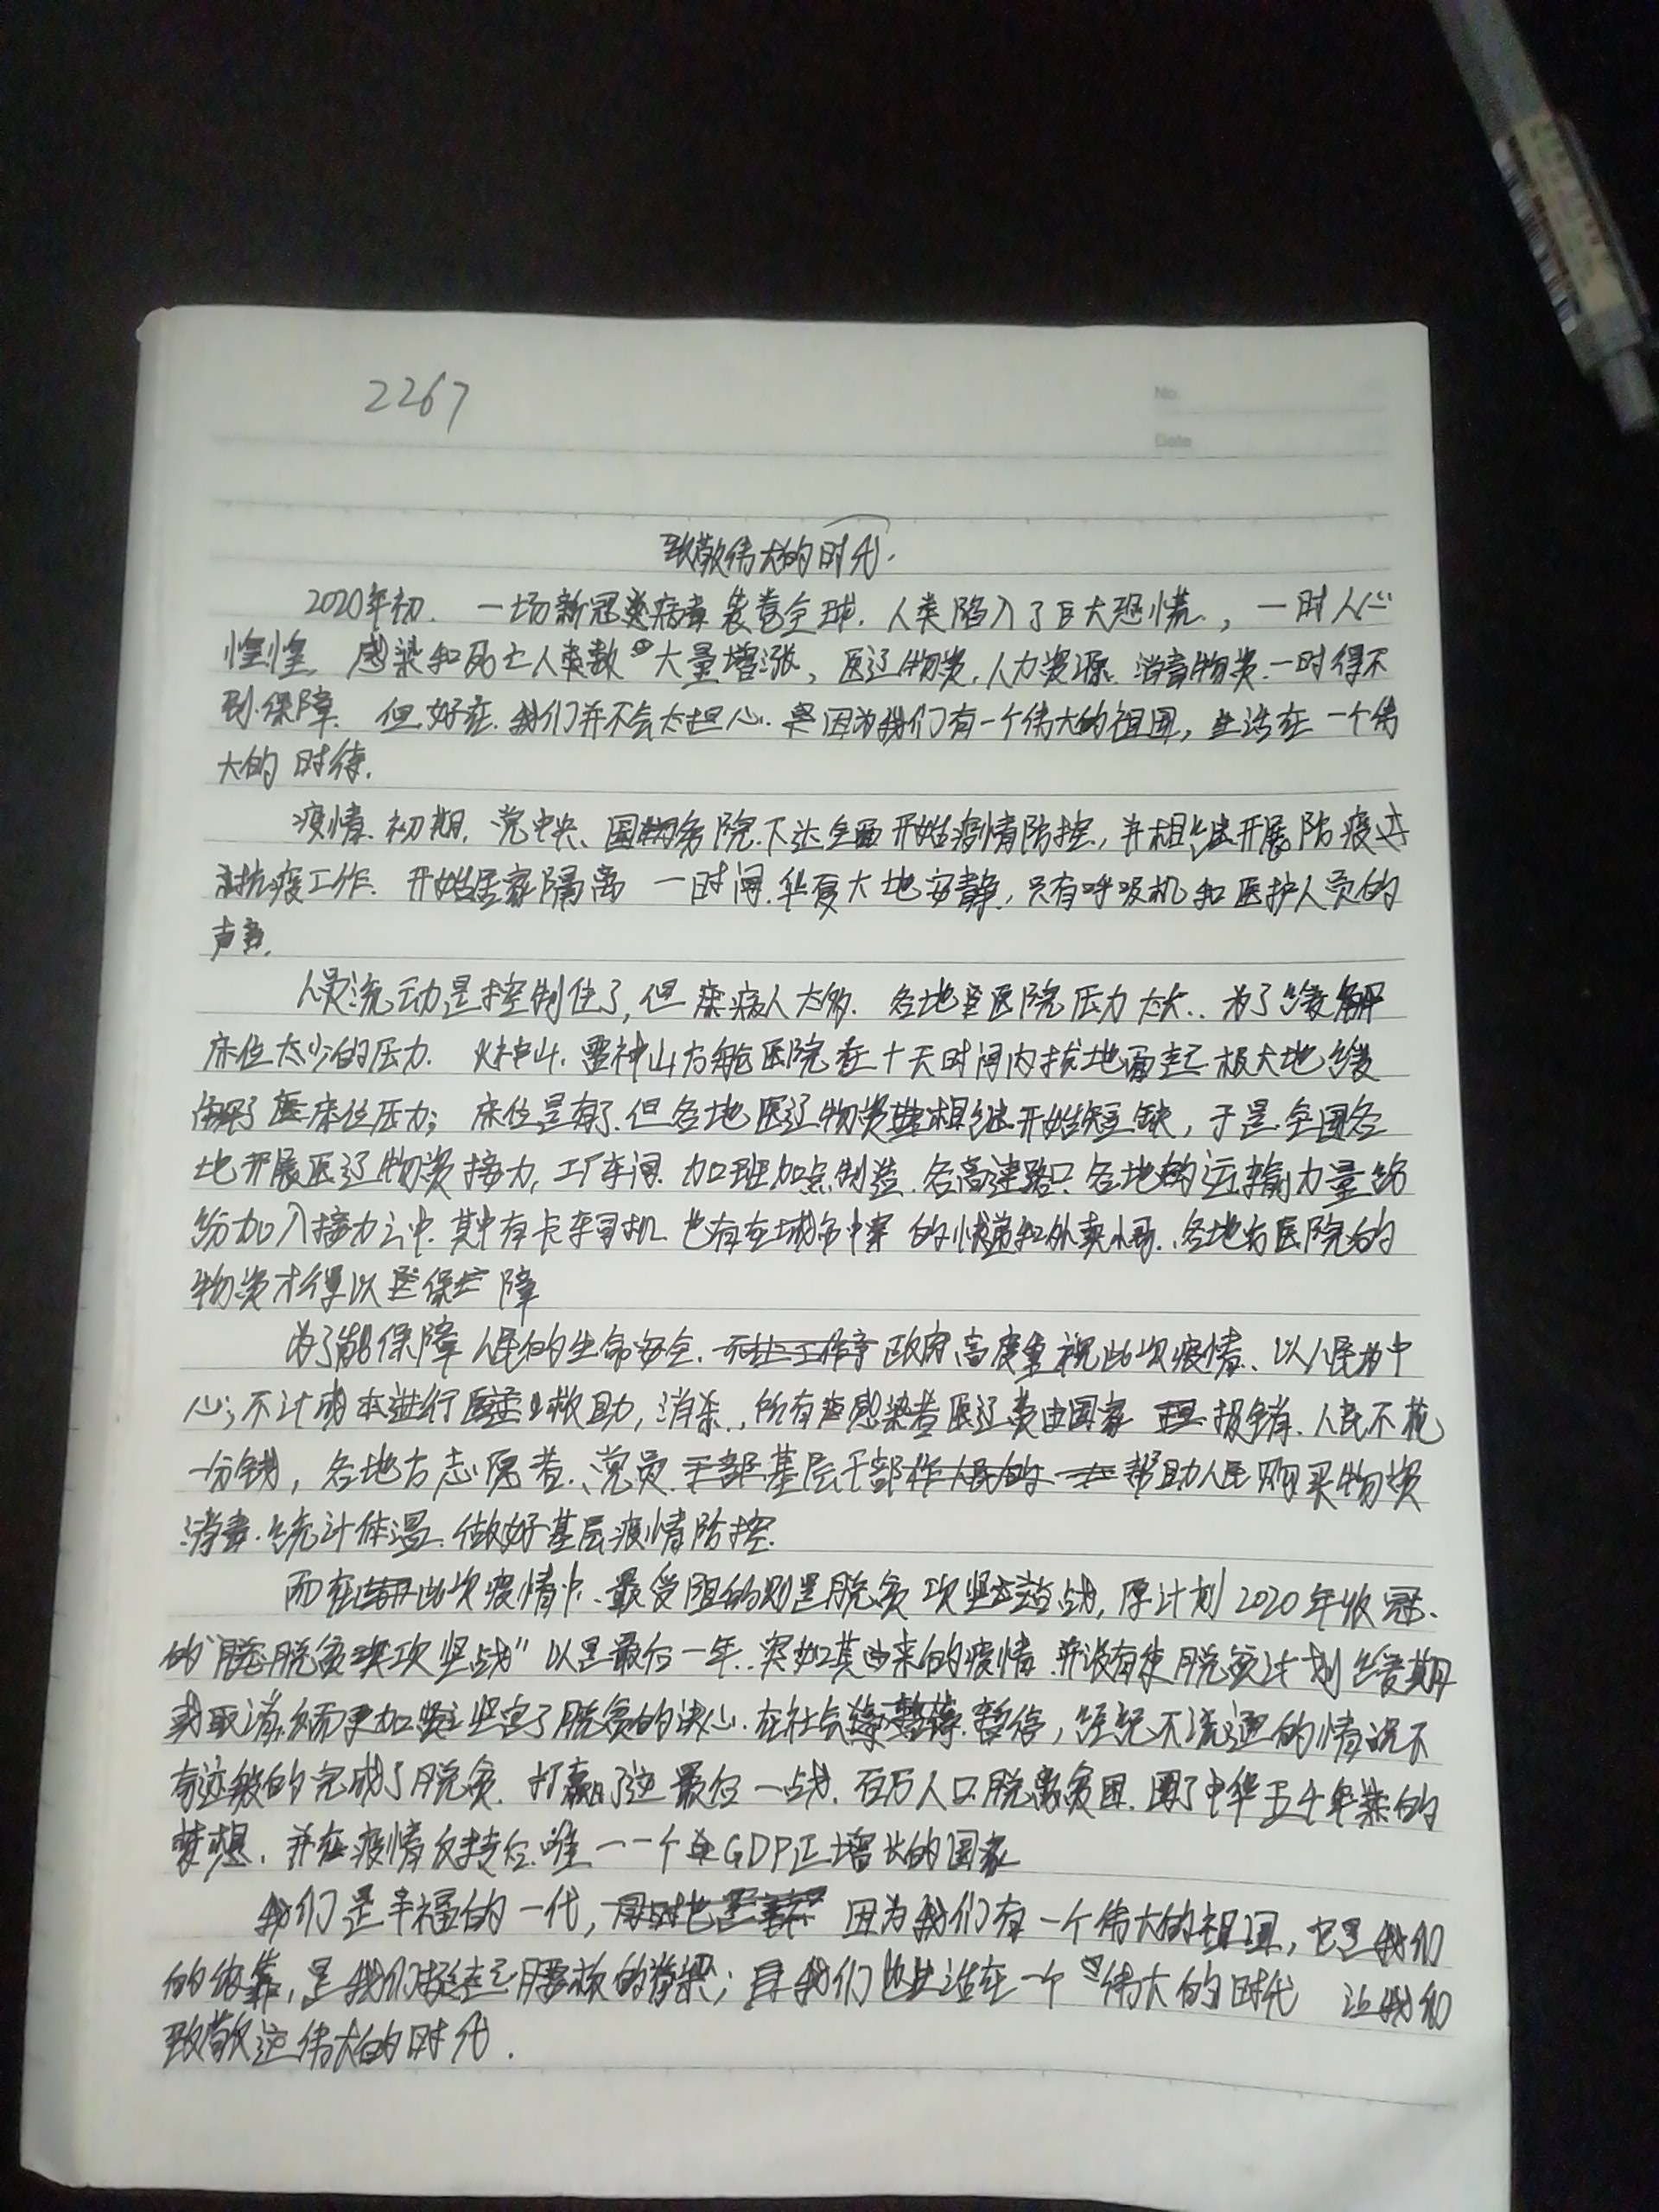 2267
No.
Date
致敬伟大的时代.
2020年初. 一场新冠病毒袭卷全球. 人类陷入了巨大恐慌, 一时人心
惶惶. 感染和死亡人数大量增涨, 医辽物资, 人力资源. 消毒物资一时得不
到保障. 但好在. 我们并不会太担心. 因为我们有一个伟大的祖国, 生活在一个伟
大的时待.
疫情初期. 党中央、国务院下达全面开始疫情防控, 并相继开展防疫
抗疫工作. 开始居家隔离 一时间. 华夏大地安静, 只有呼吸机和医护人员的
声音.
人员流动是控制住了, 但病人太多. 各地医院压力太大.. 为了缓解
床位太少的压力. 火神山. 雷神山方舱医院在十天时间内拔地而起 极大地缓
解了床位压力; 床位是有了. 但各地医辽物资相继开始短缺, 于是全国各
地开展医辽物资接力, 工厂车间. 加班加点制造. 各高速路口. 各地的运输力量纷
纷加入接力之中. 其中有卡车司机 也有在城市中的快递和外卖小哥.. 各地方医院的
物资才得以保障
为了能保障人民的生命安全. 政府高度重视此次疫情.. 以人民为中
心; 不计成本进行救助, 消杀., 所有感染者医辽费由国家报销. 人民不花
一分钱, 各地方志愿者. 党员. 基层干部帮助人民购买物资
消毒. 统计体温. 做好基层疫情防控.
而在此次疫情中. 最受阻的则是脱贫攻坚战, 原计划2020年收官.
的"脱贫攻坚战"以是最后一年.. 突如其由来的疫情 并没有使脱贫计划缓期
或取消. 而更加坚定了脱贫的决心. 在社会暂停, 经纪不流通的情况下
奇迹般的完成了脱贫. 打赢了这最后一战. 百万人口脱离贫困. 圆了中华五千年来的
梦想. 并在疫情反转后. 唯一一个GDP正增长的国家
我们是幸福的一代, 因为我们有一个伟大的祖国, 它是我们
的依靠, 是我们挺起腰板的脊梁; 我们也生活在一个伟大的时代 让我们
致敬这伟大的时代.